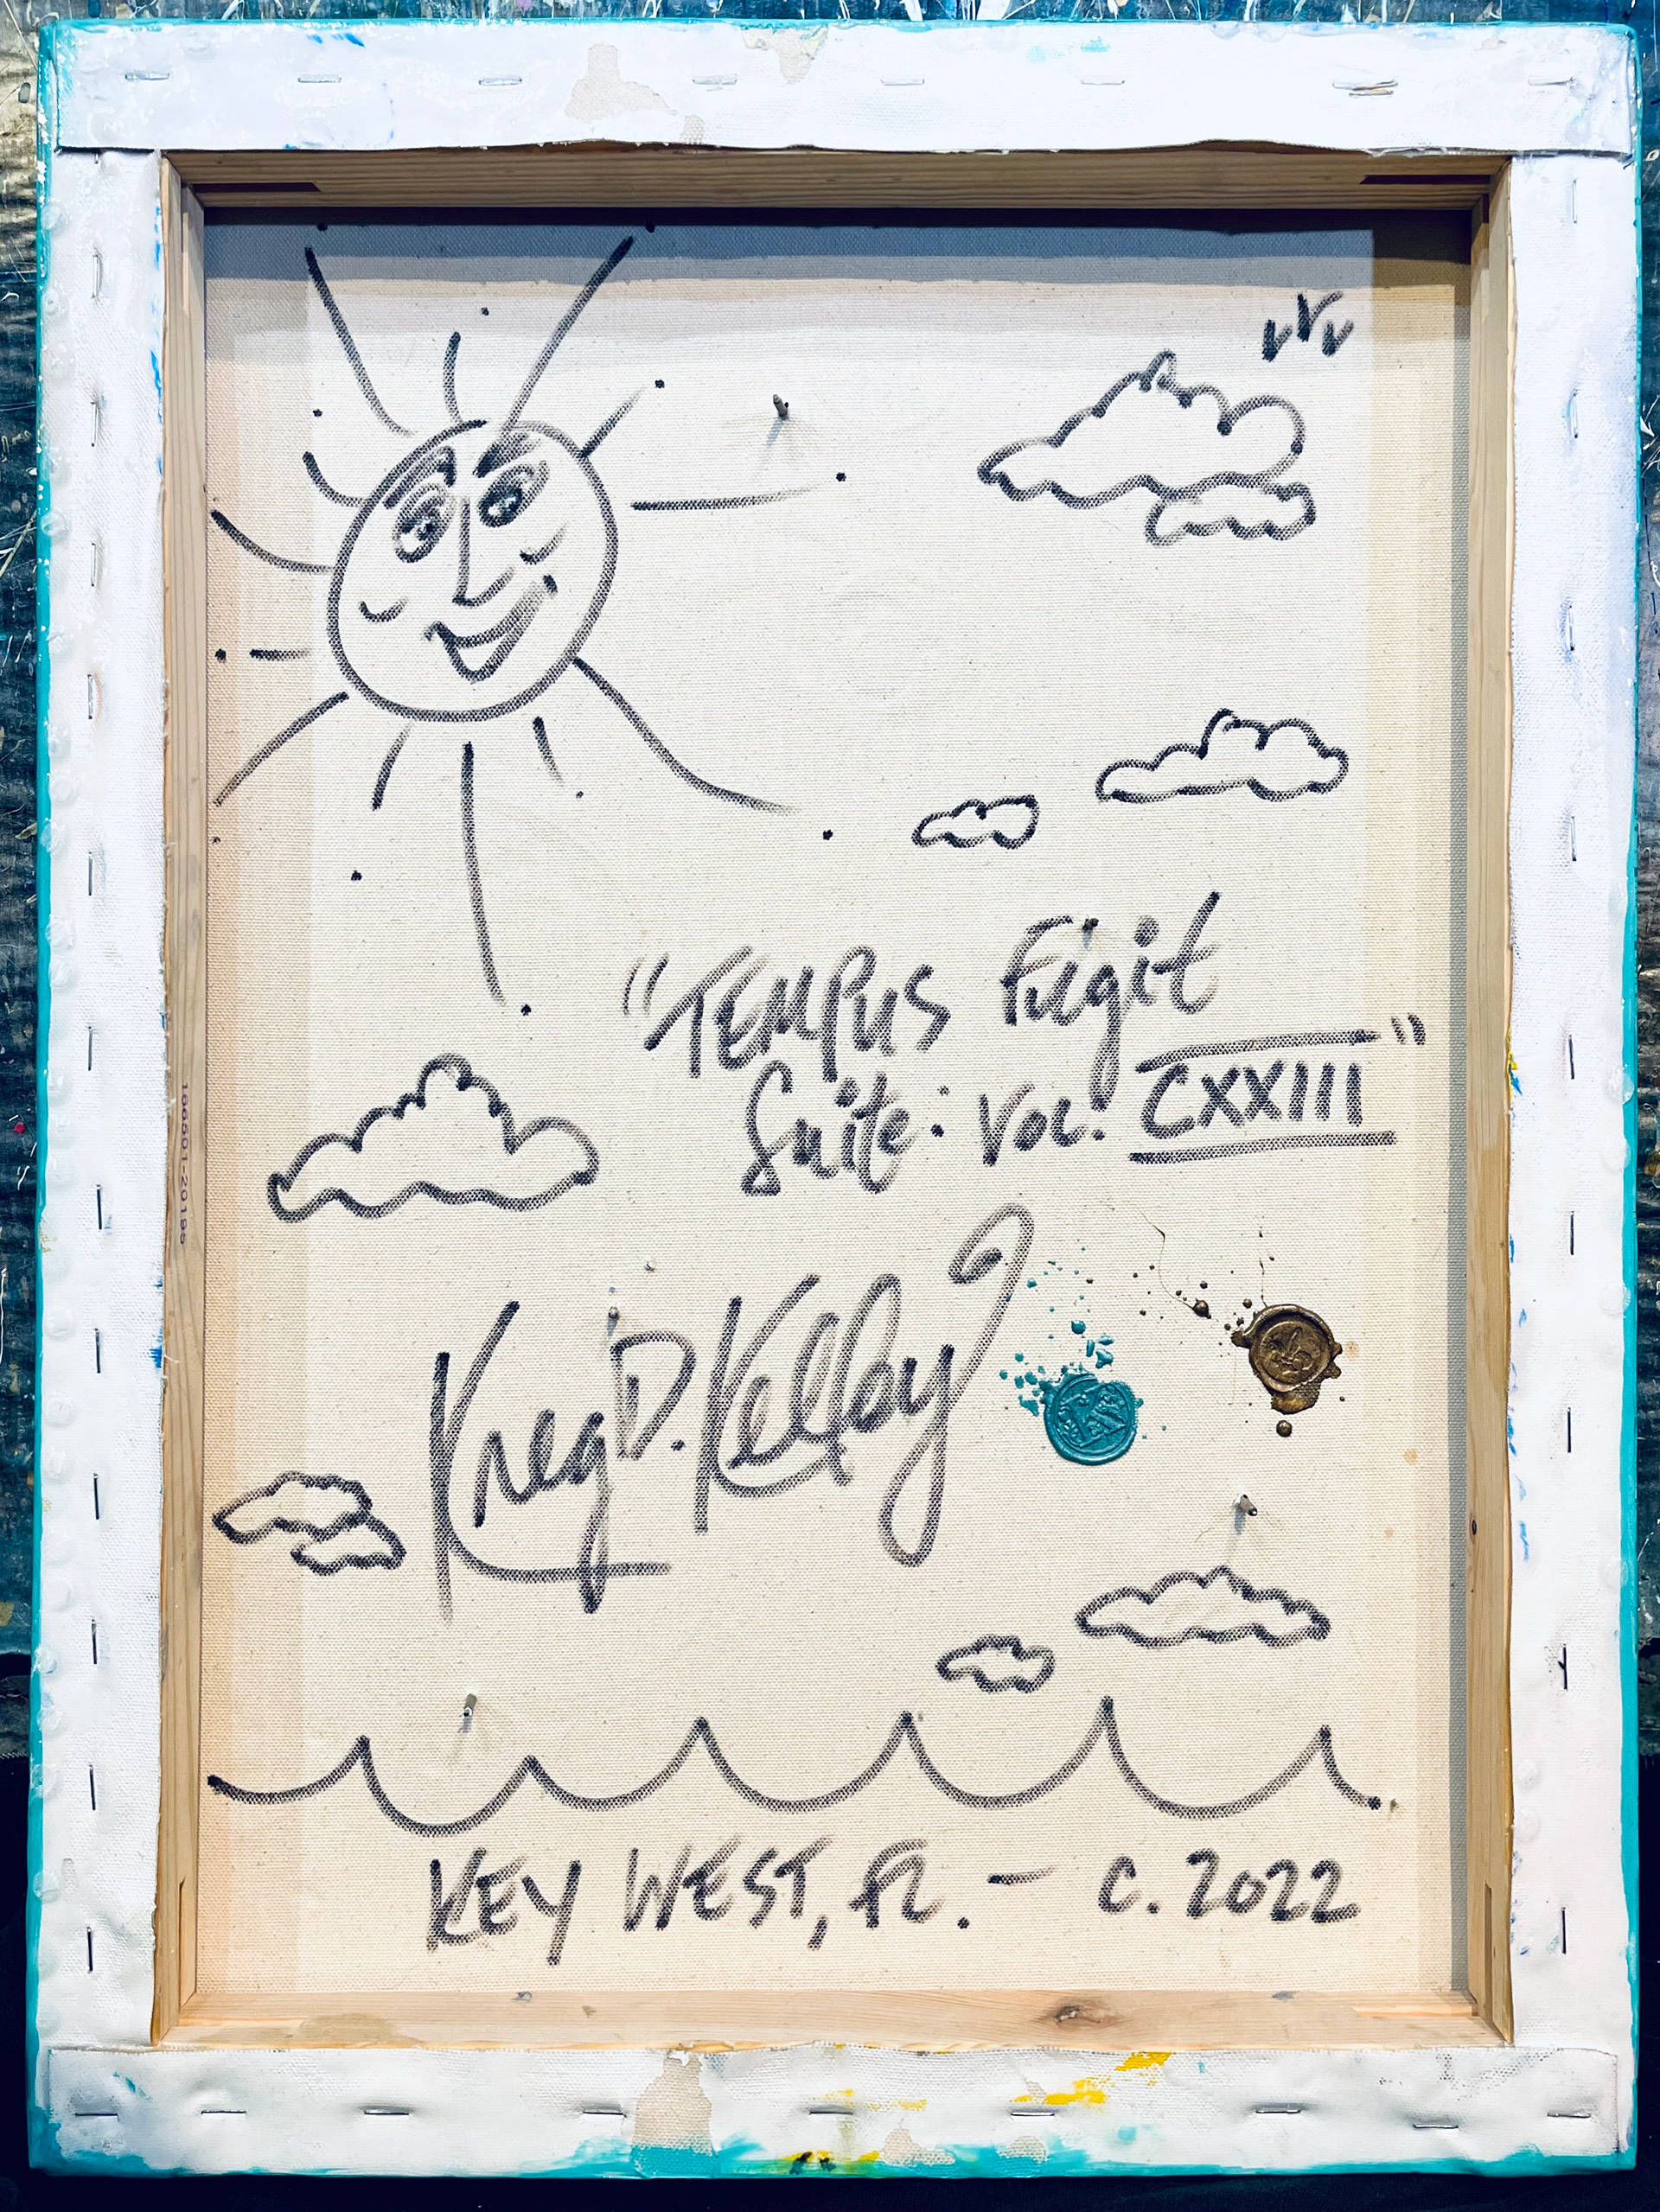 "TEMPUS Fugit
Suite: Vol. CXXIII"
Kreg D. Kelley
KEY WEST, FL. — C. 2022